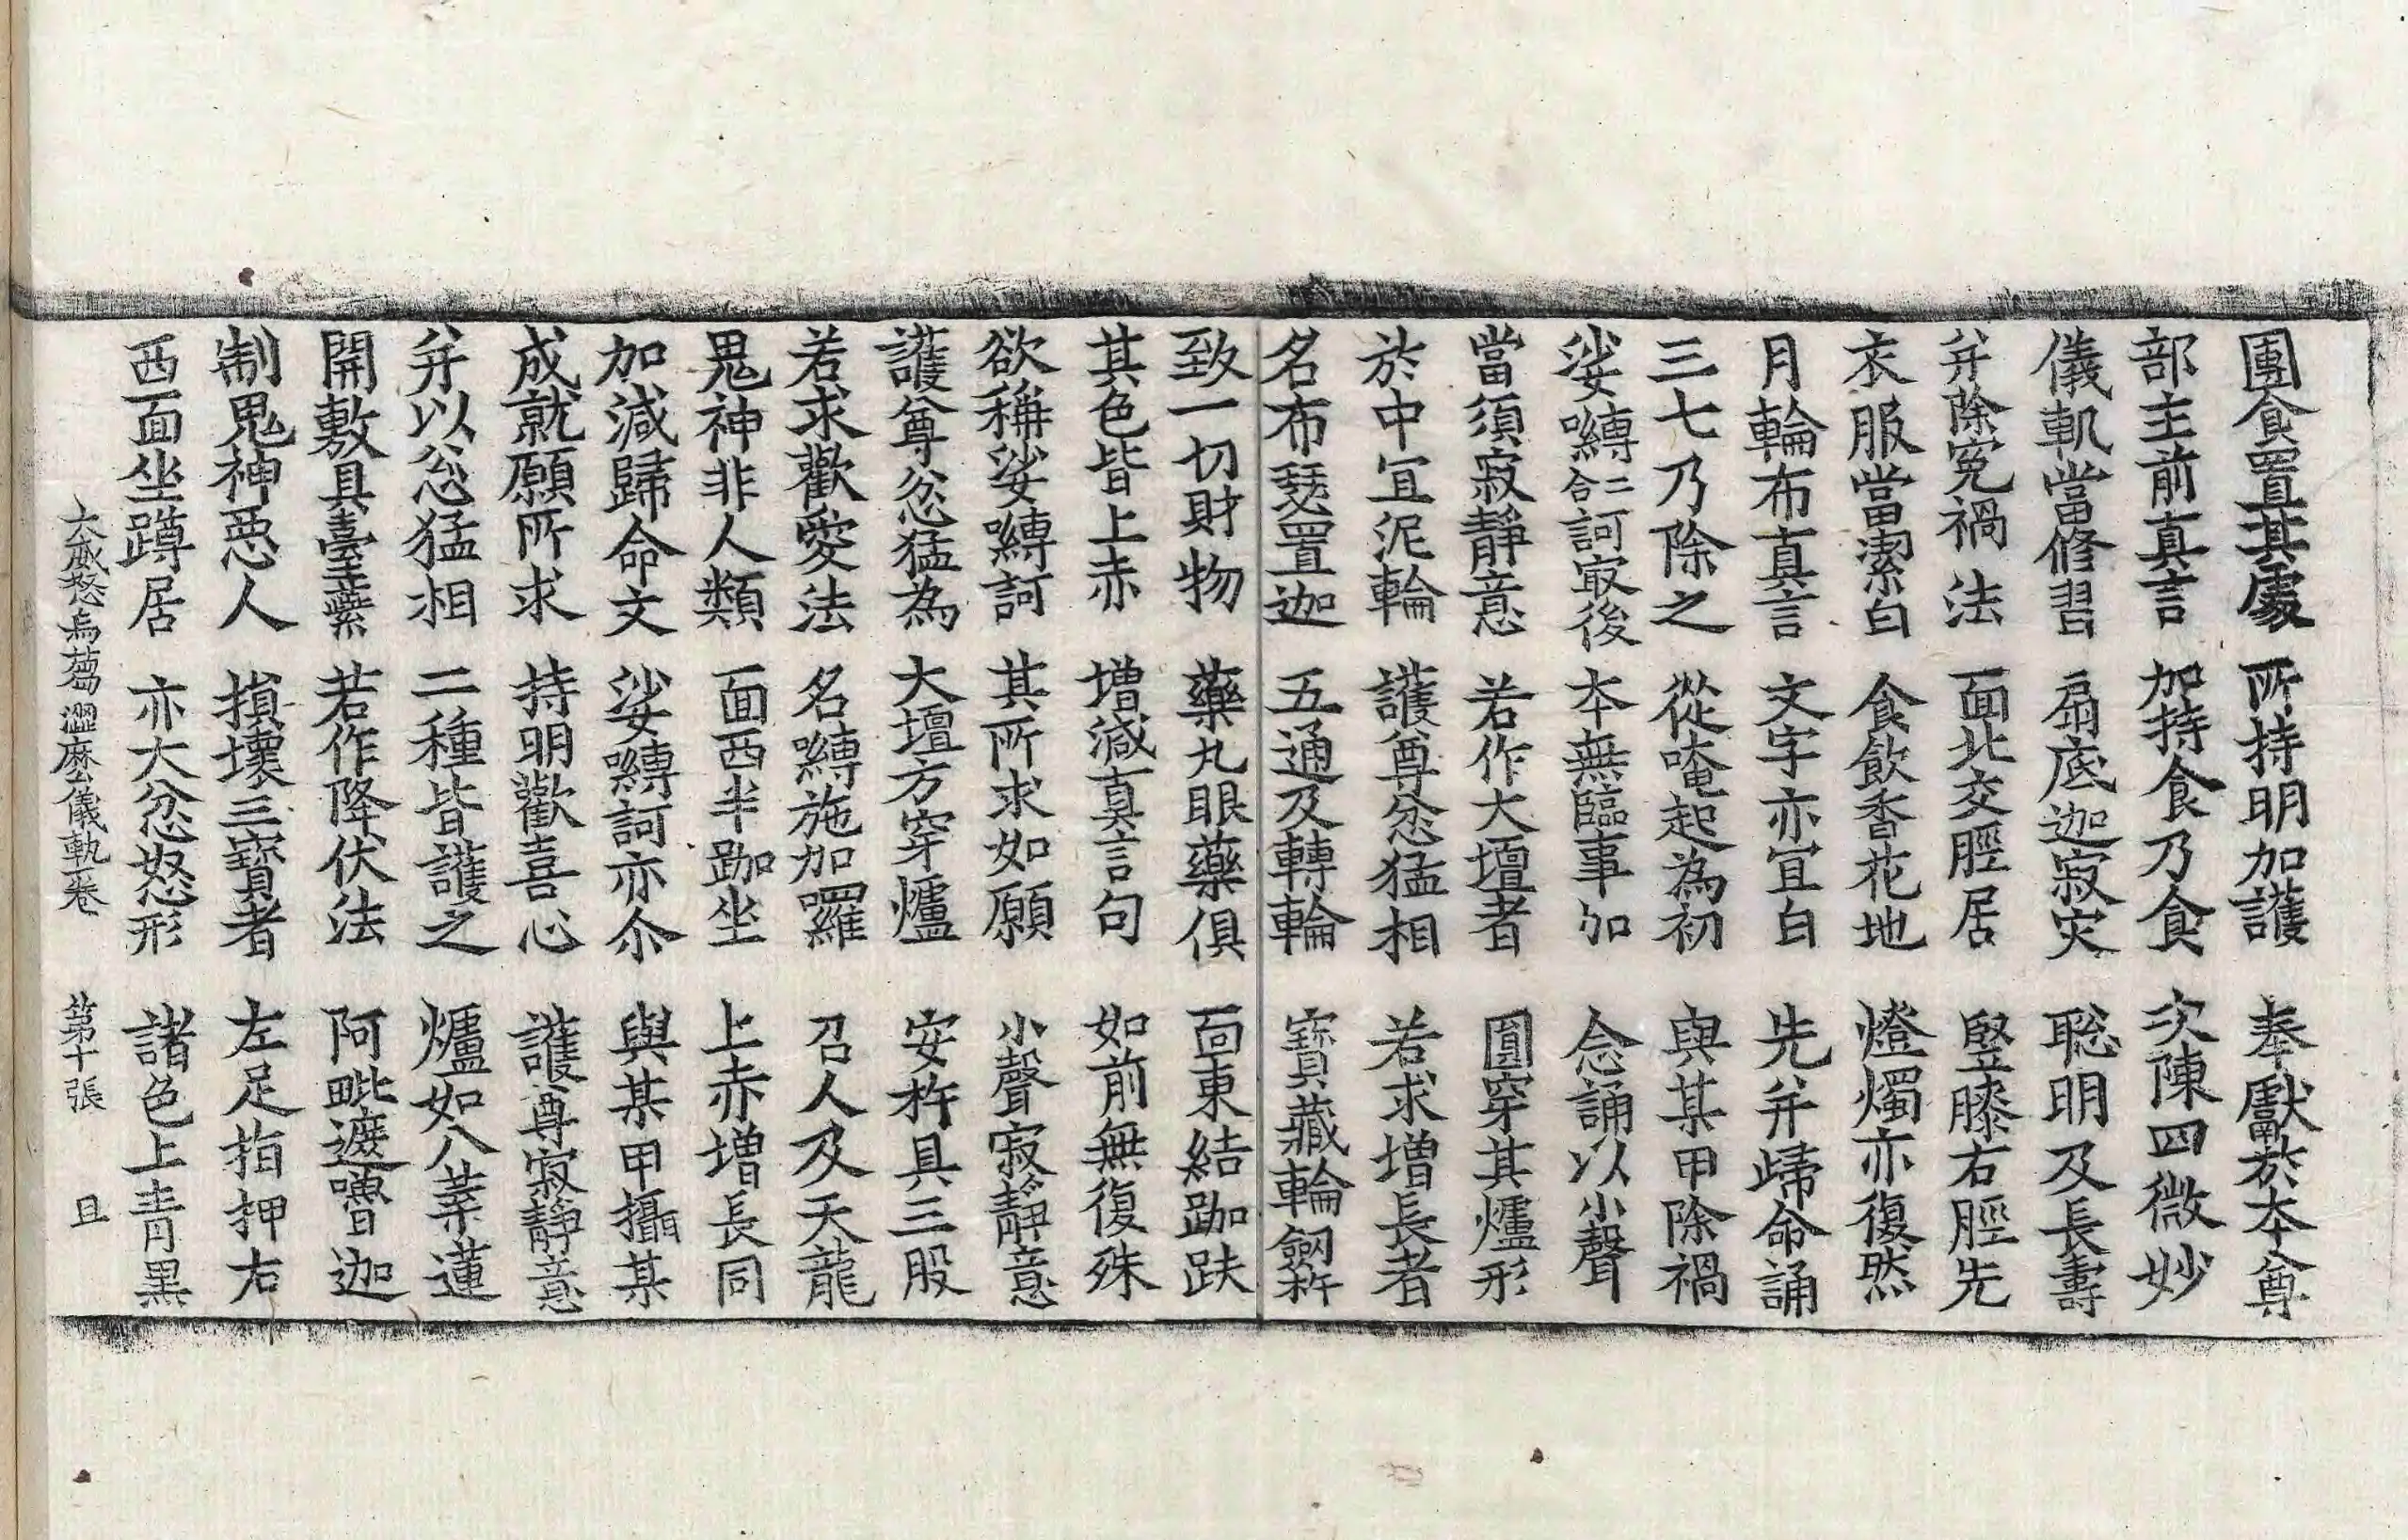 團食置其處　所持明加護　奉獻於本尊
部主前真言　加持食乃食　次陳四微妙
儀軌當修習　扇底迦寂灾　聡明及長壽
并除寃禍法　面北交脛居　竪膝右脛先
衣服當潔白　食飲香花地　燈燭亦復然
月輪布真言　文字亦冝白　先并歸命誦
三七乃除之　從唵起為初　與某甲除禍
娑嚩二合訶㝡後　本無臨事加　念誦以小聲
當須寂靜意　若作大壇者　圓穿其爐形
於中冝泥輪　護尊忿猛相　若求增長者
名布瑟置迦　五通及轉輪　寶藏輪劒杵
致一切財物　藥丸眼藥俱　面東結跏趺
其色皆上赤　增減真言句　如前無復殊
欲稱娑嚩訶　其所求如願　小聲寂靜意
護尊忿猛為　大壇方穿爐　安杵具三股
若求歡愛法　名嚩施加羅　召人及天龍
鬼神非人類　面西半跏坐　上赤增長同
加減歸命文　娑嚩訶亦尒　與某甲攝某
成就願所求　持明歡喜心　護尊寂靜意
并以忿猛相　二種皆護之　爐如八葉蓮
開敷具臺蘂　若作降伏法　阿毗遮嚕迦
制鬼神惡人　損壞三寶者　左足指押右
西面坐蹲居　亦大忿怒形　諸色上青黑
大威怒烏蒭澀麼儀軌一卷　第十張　且